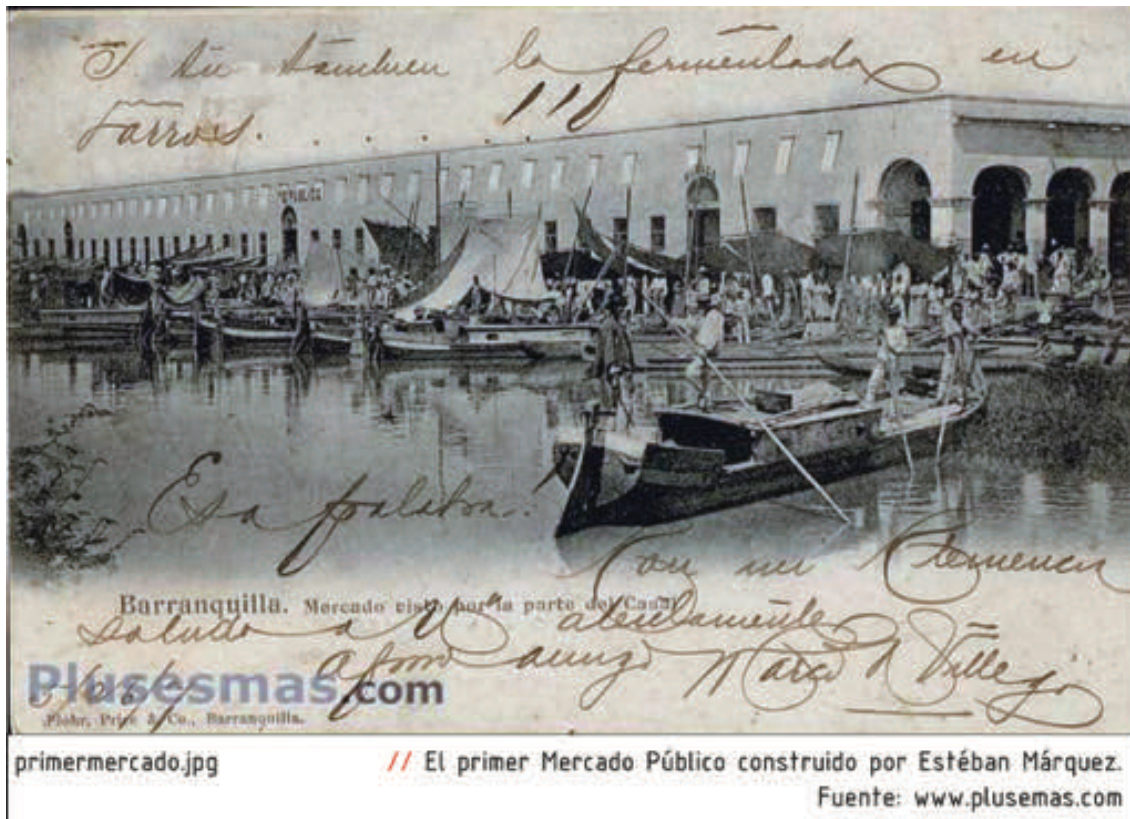 Y tu tambien la fermentada en
110
REPUBLICA
Esa palabra..!
Con mi
Barranquilla. Mercado visto por la parte del Canal.
saludo a V atentamente
amigo Marco A Villega
Plusesmas.com
Flohr, Price & Co., Barranquilla.
primermercado.jpg
// El primer Mercado Público construido por Estéban Márquez.
Fuente: www.plusemas.com